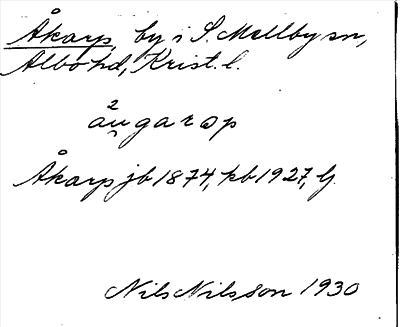 Åkarp, by i S. Mellby sn,
Albo hd, Krist. l.
2
åu̯garɷp
Åkarp jb 1874, kb 1927, G.
Nils Nilsson 1930